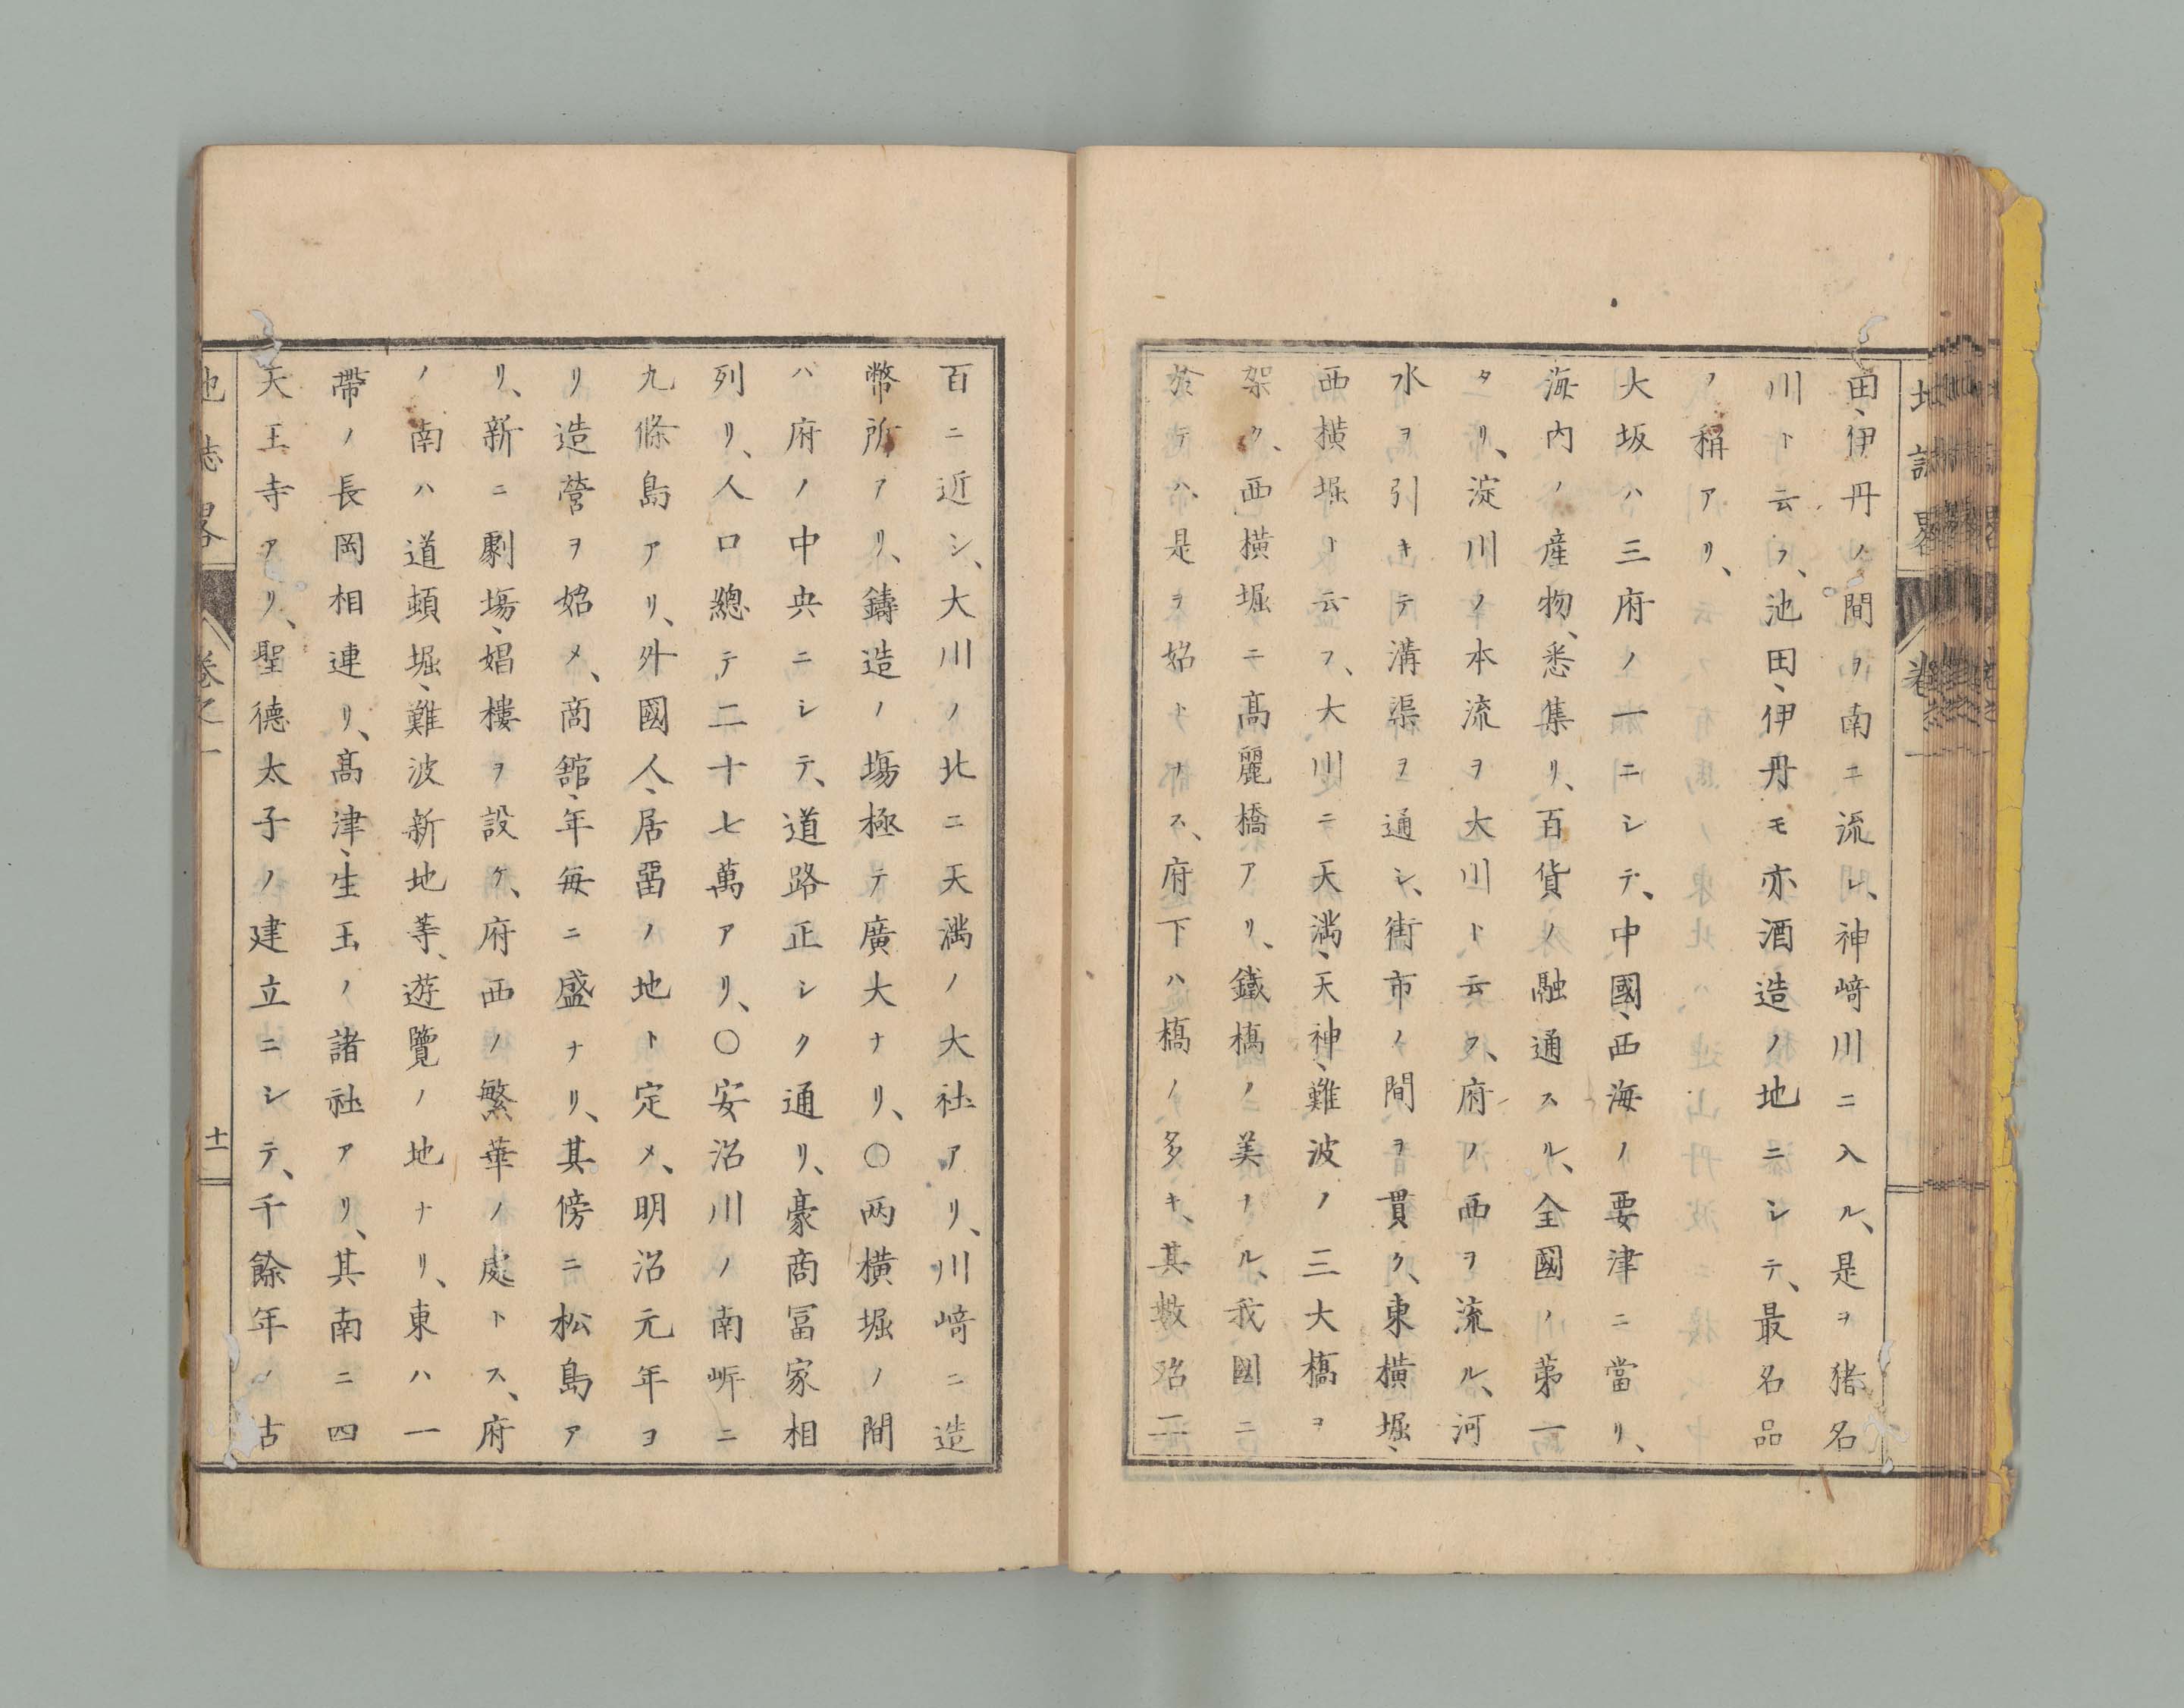 地誌畧
卷之一
田、伊丹ノ間ヲ南ニ流レ、神﨑川ニ入ル、是ヲ猪名
川ト云フ、池田、伊丹モ亦酒造ノ地ニシテ、最名品
ノ稱アリ、
大坂ハ三府ノ一ニシテ、中國、西海ノ要津ニ當リ、
海內ノ產物、悉集リ、百貨ノ融通スル、全國ノ第一
タリ、淀川ノ本流ヲ大川ト云フ、府ノ西ヲ流ル、河
水ヲ引キテ溝渠ヲ通シ、街市ノ間ヲ貫ク、東橫堀、
西橫堀ト云フ、大川ニ天滿、天神、難波ノ三大橋ヲ
架ク、西橫堀ニ高麗橋アリ、鐵橋ノ美ナル、我國ニ
於テハ、是ヲ始トナス、府下ハ橋ノ多キ、其數殆二
百ニ近シ、大川ノ北ニ天滿ノ大社アリ、川﨑ニ造
幣所アリ、鑄造ノ塲極テ廣大ナリ、〇兩橫堀ノ間
ハ府ノ中央ニシテ、道路正シク通リ、豪商冨家相
列リ、人口總テ二十七萬アリ、〇安治川ノ南岍ニ
九條島アリ、外國人、居畱ノ地ト定メ、明治元年ヨ
リ造營ヲ始メ、商舘、年毎ニ盛ナリ、其傍ニ松島ア
リ、新ニ劇塲、娼樓ヲ設ケ、府西ノ繁華ノ處トス、府
ノ南ハ道頓堀、難波新地等、遊覽ノ地ナリ、東ハ一
帶ノ長岡相連リ、高津、生玉ノ諸社アリ、其南ニ四
天王寺アリ、聖德太子ノ建立ニシテ、千餘年ノ古
地誌畧
卷之一
十一